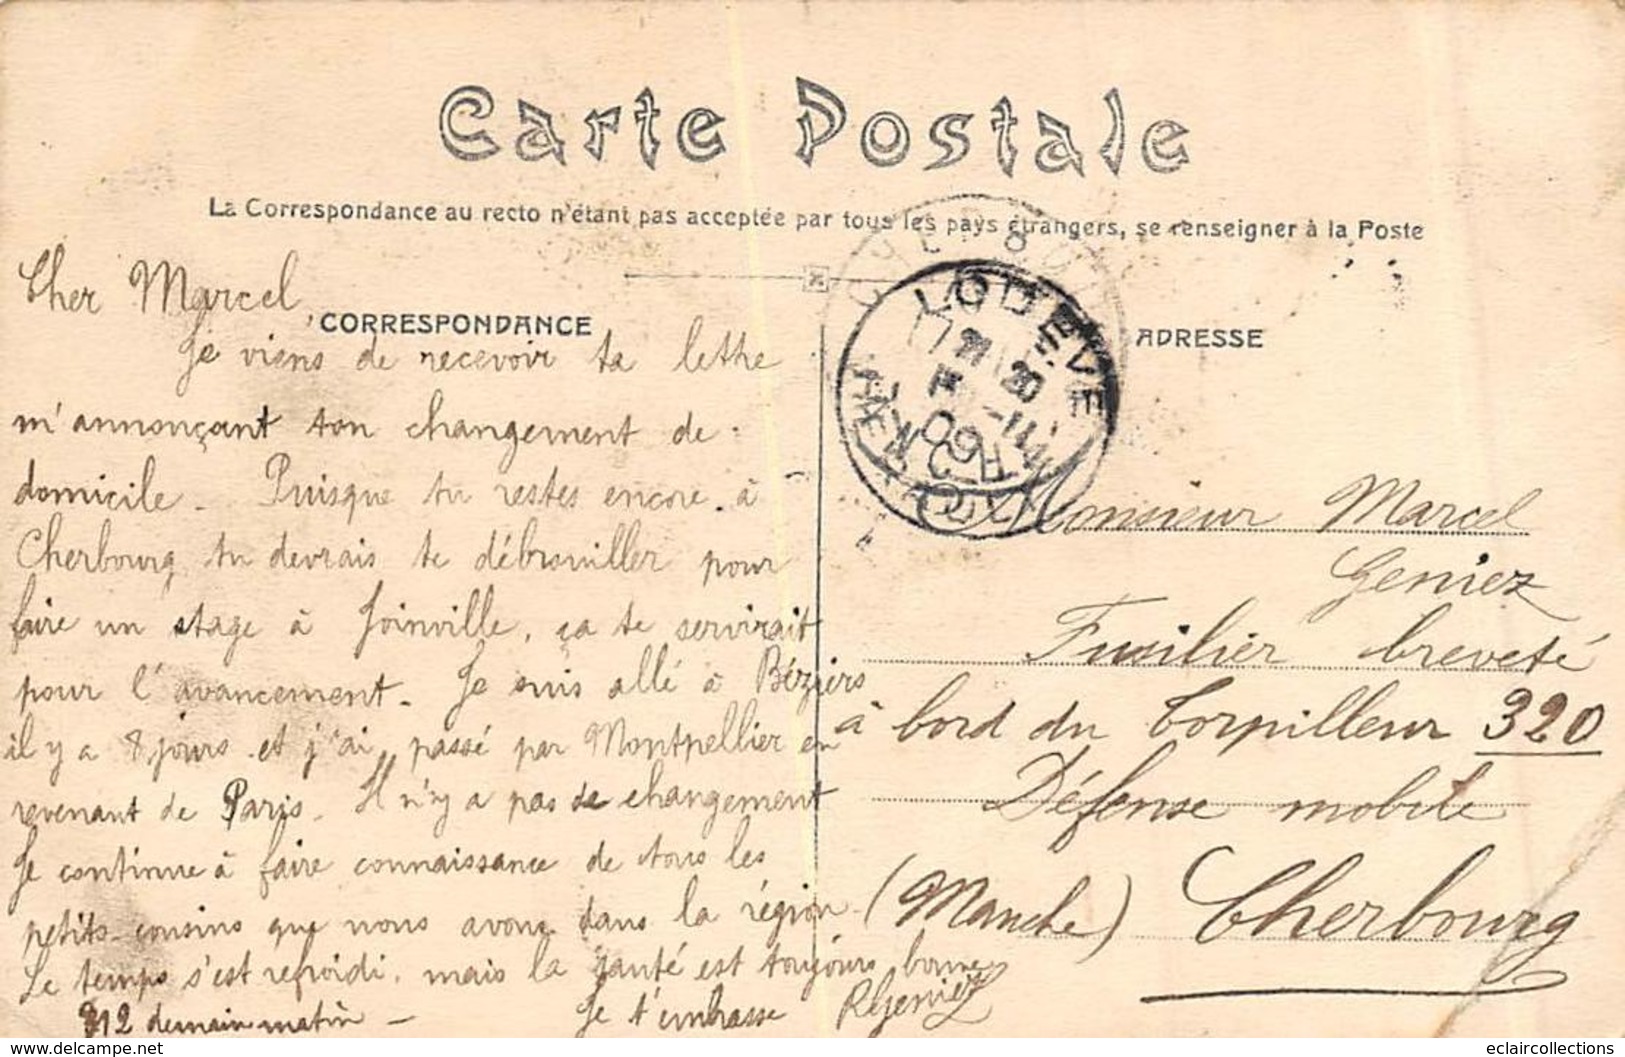 Carte Postale
La Correspondance au recto n'étant pas acceptée par tous les pays étrangers, se renseigner à la Poste
Cher Marcel
CORRESPONDANCE
Je viens de recevoir ta lettre
m'annonçant ton changement de
domicile. Puisque tu restes encore à
Cherbourg tu devrais te débrouiller pour
faire un stage à Joinville, ça te servirait
pour l'avancement. Je suis allé à Béziers
il y a 8 jours et j'ai passé par Montpellier en
revenant de Paris. Il n'y a pas de changement
Je continue à faire connaissance de tous les
petits cousins que nous avons dans la région.
Le temps s'est refroidi, mais la santé est toujours bonne
312 demain matin - Je t'embrasse RGeniez
LODEVE
HERAULT
ADRESSE
Monsieur Marcel
Geniez
Fusilier breveté
à bord du Torpilleur 320
Défense mobile
(Manche) Cherbourg
eclaircollections